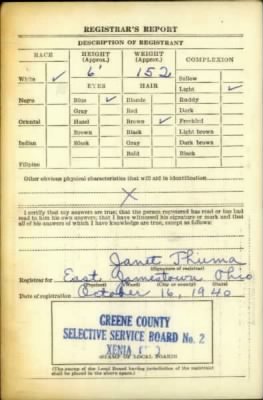 REGISTRAR'S REPORT
DESCRIPTION OF REGISTRANT
RACE HEIGHT (Approx.) WEIGHT (Approx.) COMPLEXION
6' 152
White ✓ Sallow
EYES HAIR Light ✓
Negro Blue ✓ Blonde Ruddy
Gray Red Dark
Oriental Hazel Brown ✓ Freckled
Brown Black Light brown
Indian Black Gray Dark brown
Bald Black
Filipino
Other obvious physical characteristics that will aid in identification
X
I certify that my answers are true; that the person registered has read or has had
read to him his own answers; that I have witnessed his signature or mark and that
all of his answers of which I have knowledge are true, except as follows:
Janet Thuma
(Signature of registrar)
Registrar for East Jamestown Ohio
(Precinct) (Ward) (City or county) (State)
Date of registration October 16, 1940
GREENE COUNTY
SELECTIVE SERVICE BOARD No. 2
XENIA
(STAMP OF LOCAL BOARD)
(The stamp of the Local Board having jurisdiction of the registrant
shall be placed in the above space.)